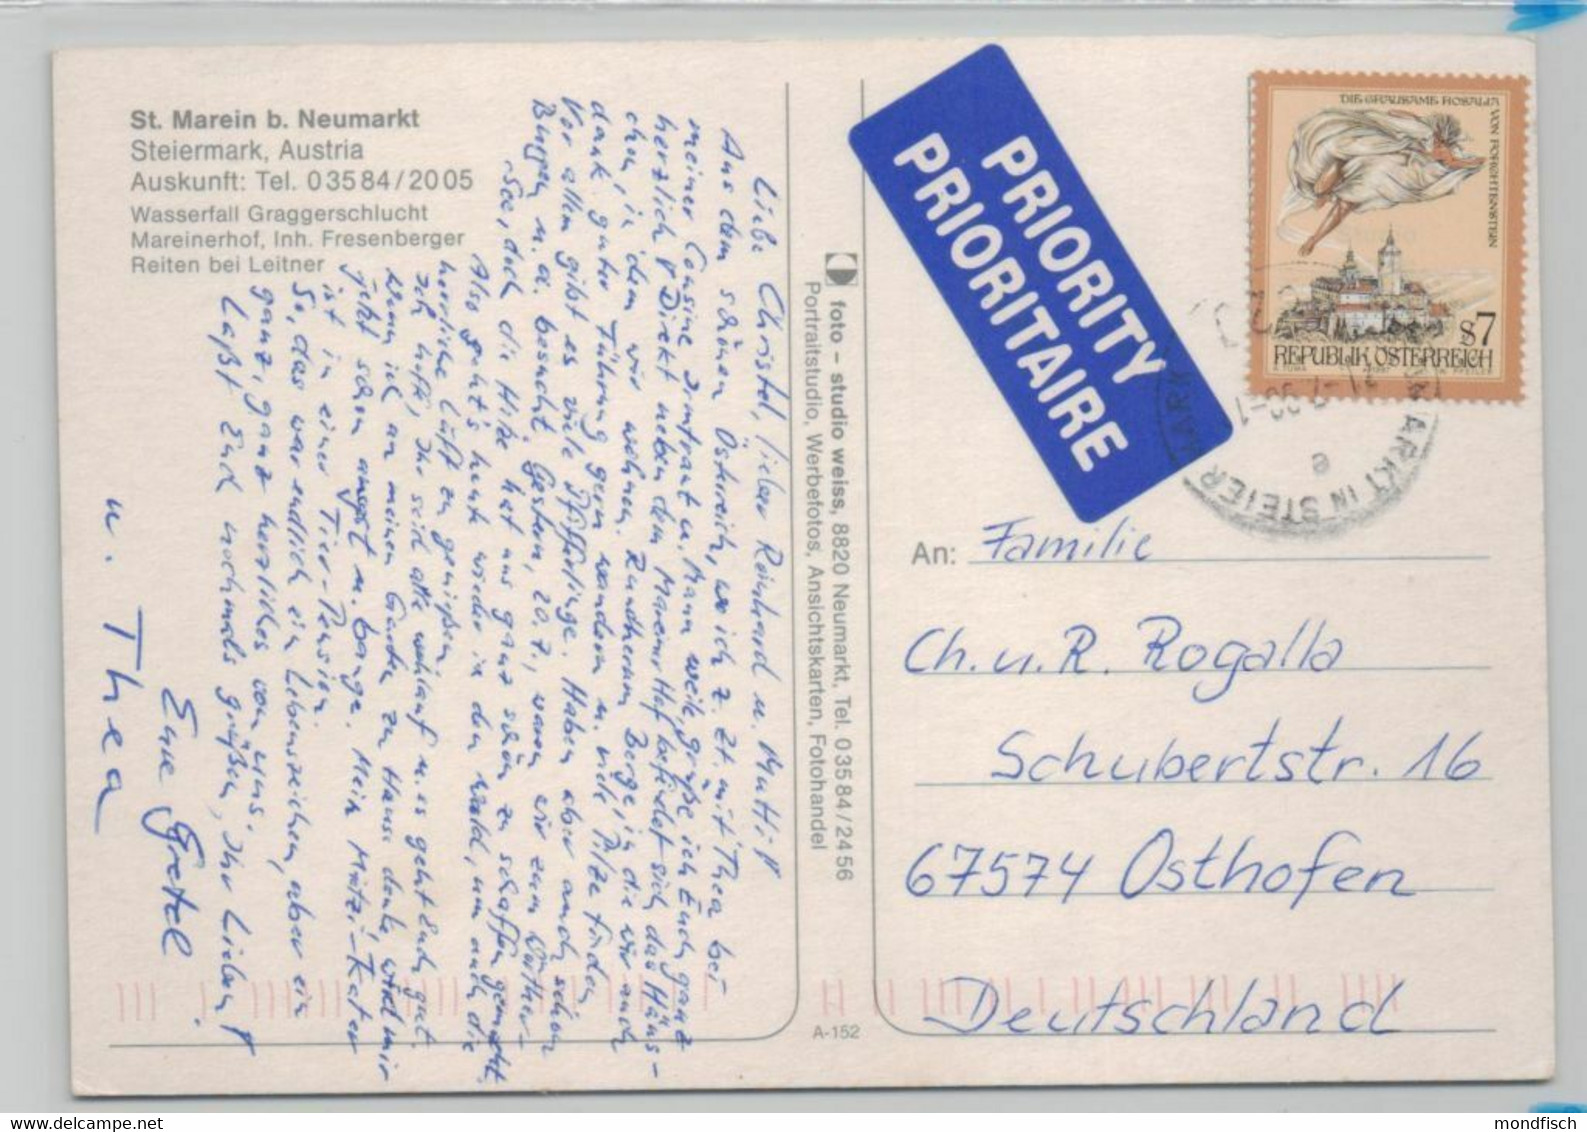 St. Marein b. Neumarkt
Steiermark, Austria
Auskunft: Tel. 03584/2005
Wasserfall Graggerschlucht
Mareinerhof, Inh. Fresenberger
Reiten bei Leitner
Liebe Christel, lieber Reinhard u. Mutti!
Aus dem schönen Österreich, wo ich z. Zt. mit Thea bei
meiner Cousine Irmtraut u. Mann weile, grüße ich Euch ganz
herzlich! Direkt neben dem Mareiner Hof befindet sich das Häus-
chen, in dem wir wohnen. Rundherum Berge, in die wir auch
dank guter Führung gern wandern u. viele Pilze finden
Vor allem gibt es viele Pfifferlinge. Haben aber auch schon
Burgen u. a. besucht. Gestern, 20.7., waren wir zum
-See, doch die Hitze hat uns ganz schön zu schaffen gemacht.
Also geht's heute wieder in den Wald, um auch die
herrliche Luft zu genießen.
Ich hoffe, Ihr seid alle wohlauf u. es geht Euch gut.
Wenn ich an meinen Garten zu Hause denke, wird mir
jetzt schon angst u. bange. Mein Mutzi-Kater
ist in einer Tier-Pension.
So, das war endlich ein Lebenszeichen, aber ein
ganz, ganz herzliches von uns.
Laßt Euch nochmals grüßen, Ihr Lieben!
Eure Gretel.
u. Thea
foto – studio weiss, 8820 Neumarkt, Tel. 03584/2456
Portraitstudio, Werbefotos, Ansichtskarten, Fotohandel
A-152
PRIORITY
PRIORITAIRE
DIE GRAUSAME ROSALIA
VON FORCHTENSTEIN
S7
REPUBLIK ÖSTERREICH
MARKT IN STEIER
e
An: Familie
Ch. u. R. Rogalla
Schubertstr. 16
67574 Osthofen
Deutschland
delcampe.net
mondfisch